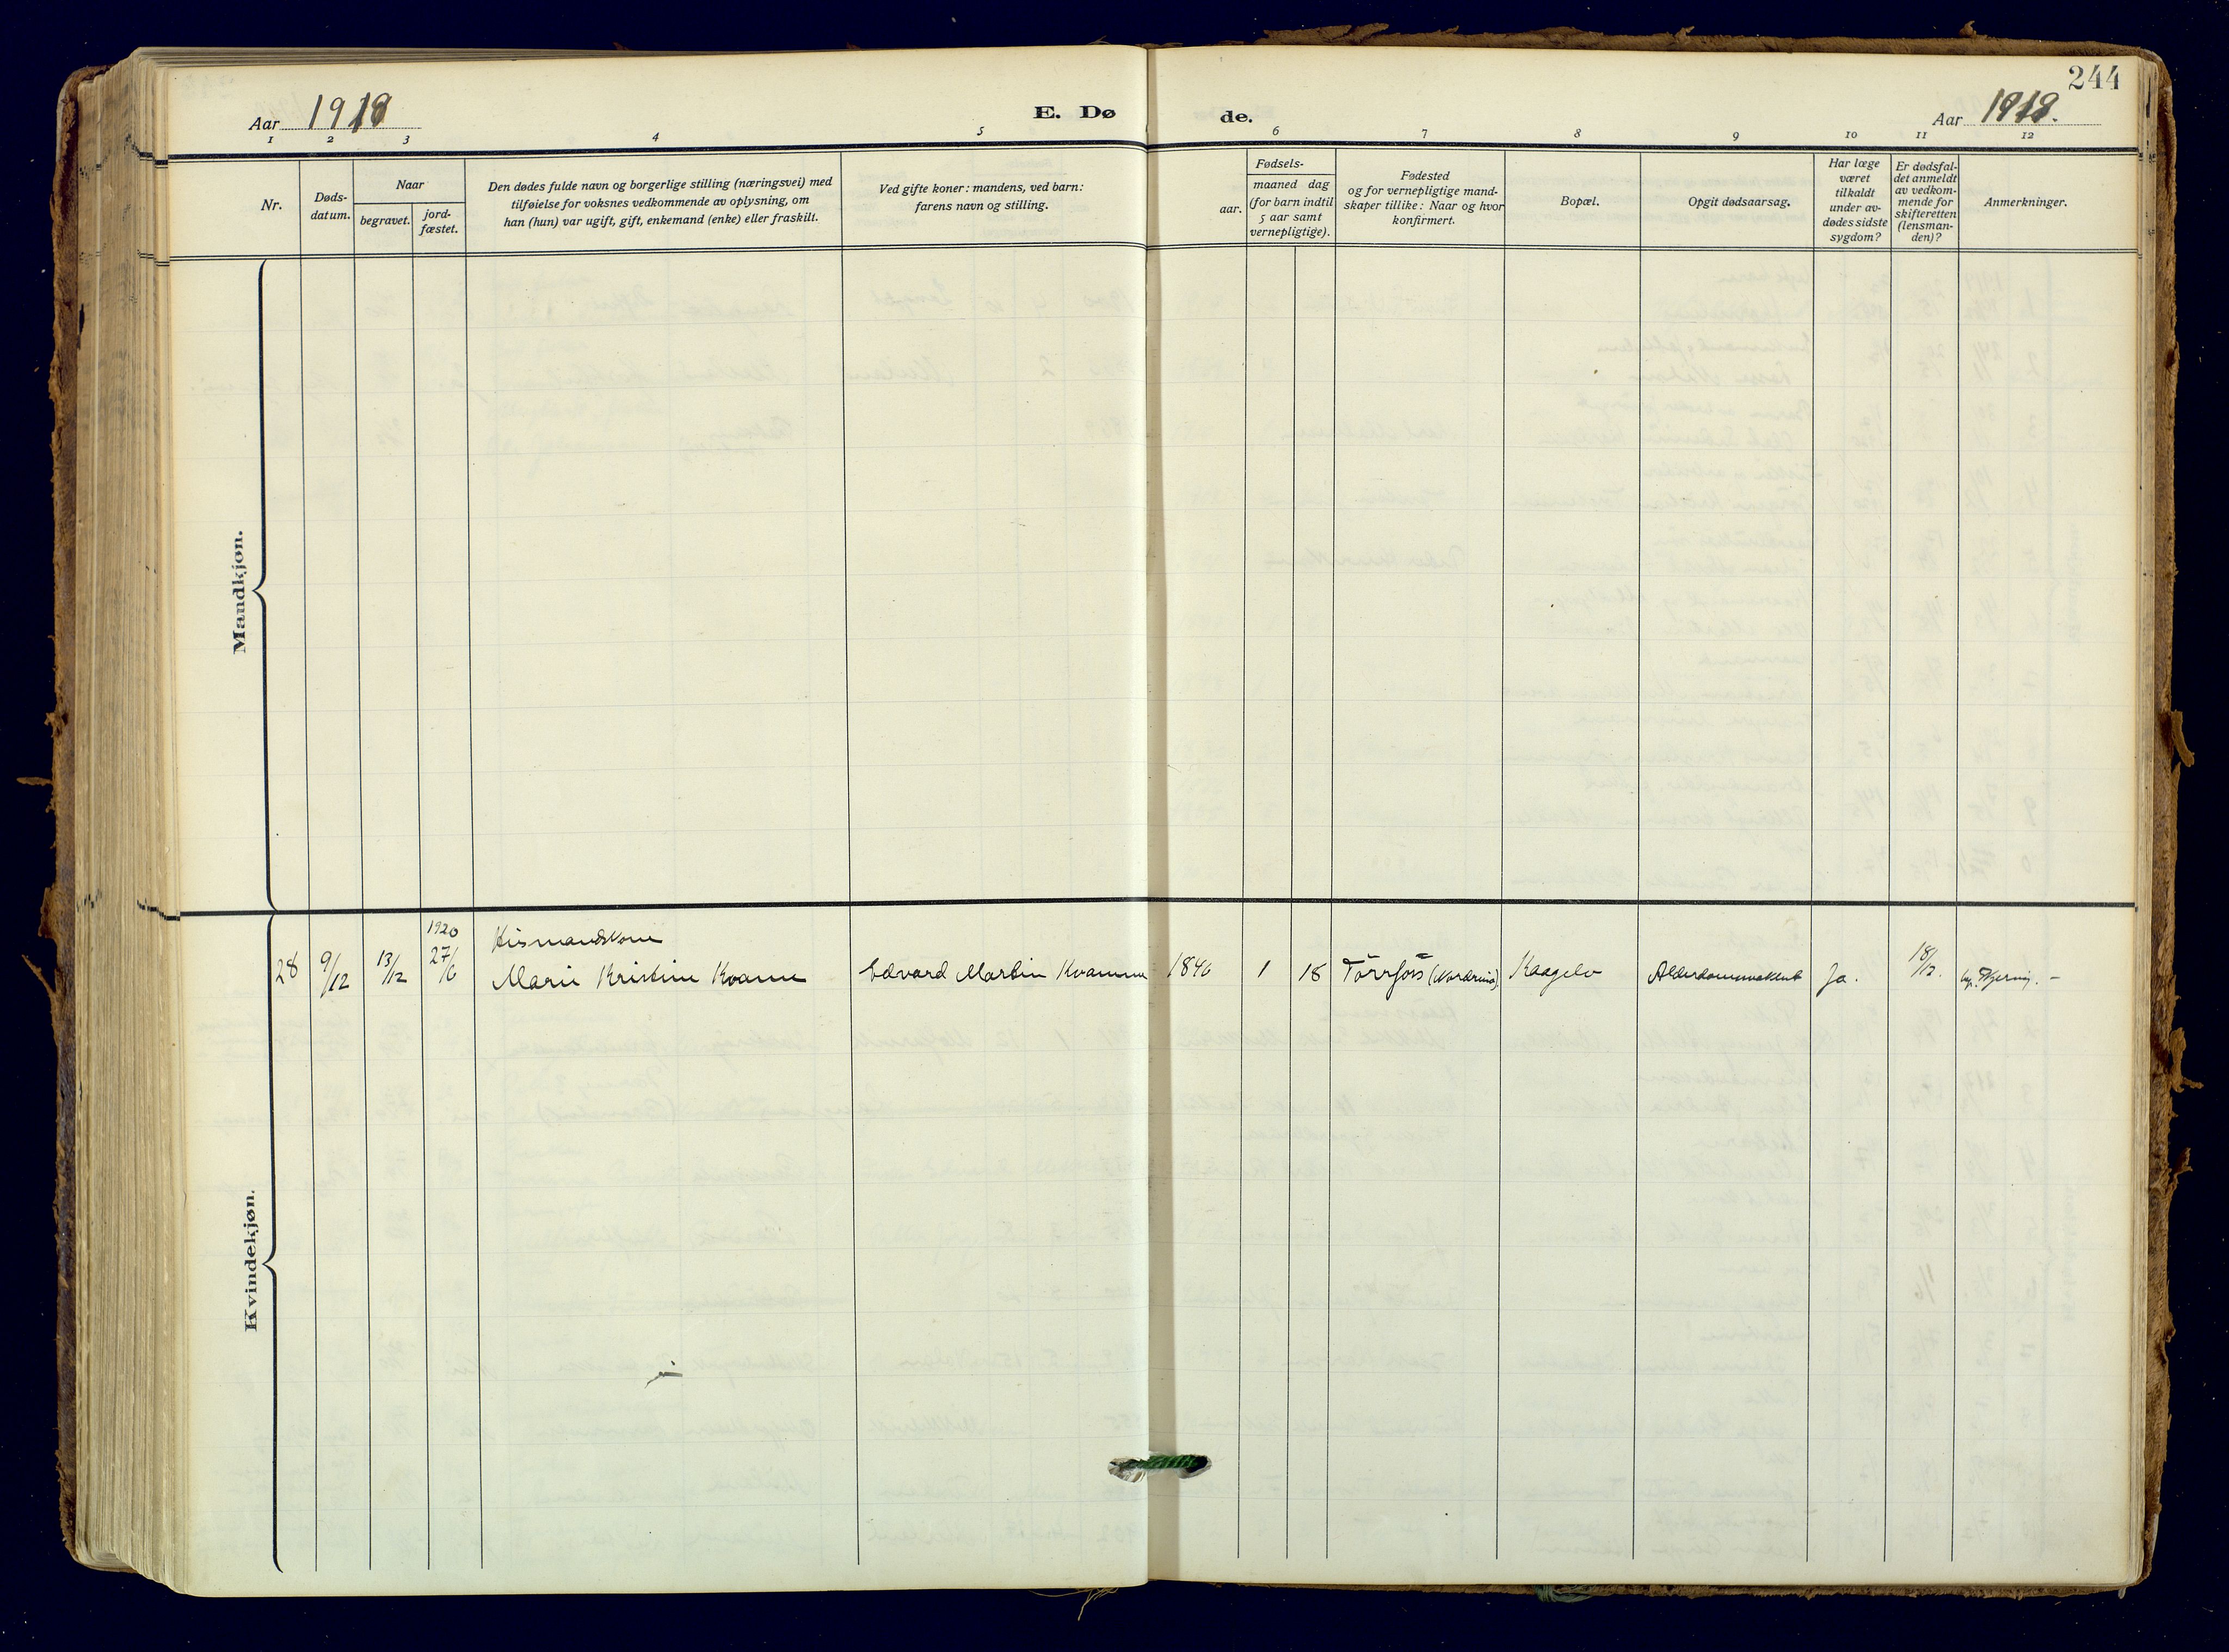 244
Aar 1918
E. Dø
de.
Aar 1918.
1 2 3 4 5 6 7 8 9 10 11 12
Nr.
Døds-
datum.
Naar
begravet.
jord-
fæstet.
Den dødes fulde navn og borgerlige stilling (næringsvei) med
tilføielse for voksnes vedkommende av oplysning, om
han (hun) var ugift, gift, enkemand (enke) eller fraskilt.
Ved gifte koner: mandens, ved barn:
farens navn og stilling.
Fødsels-
aar.
maaned dag
(for barn indtil
5 aar samt
vernepligtige).
Fødested
og for vernepligtige mand-
skaper tillike: Naar og hvor
konfirmert.
Bopæl.
Opgit dødsaarsag.
Har læge
været
tilkaldt
under av-
dødes sidste
sygdom?
Er dødsfal-
det anmeldt
av vedkom-
mende for
skifteretten
(lensman-
den)?
Anmerkninger.
Mandkjøn.
Kvindekjøn.
1920
Husmandskone
28 9/12 13/12 27/6 Marie Kristine Kvamme Edvard Martin Kvamme 1846 1 18 Törrfors (Nordreisa) Kaagelv Alderdomssvakhet Ja. 18/12.